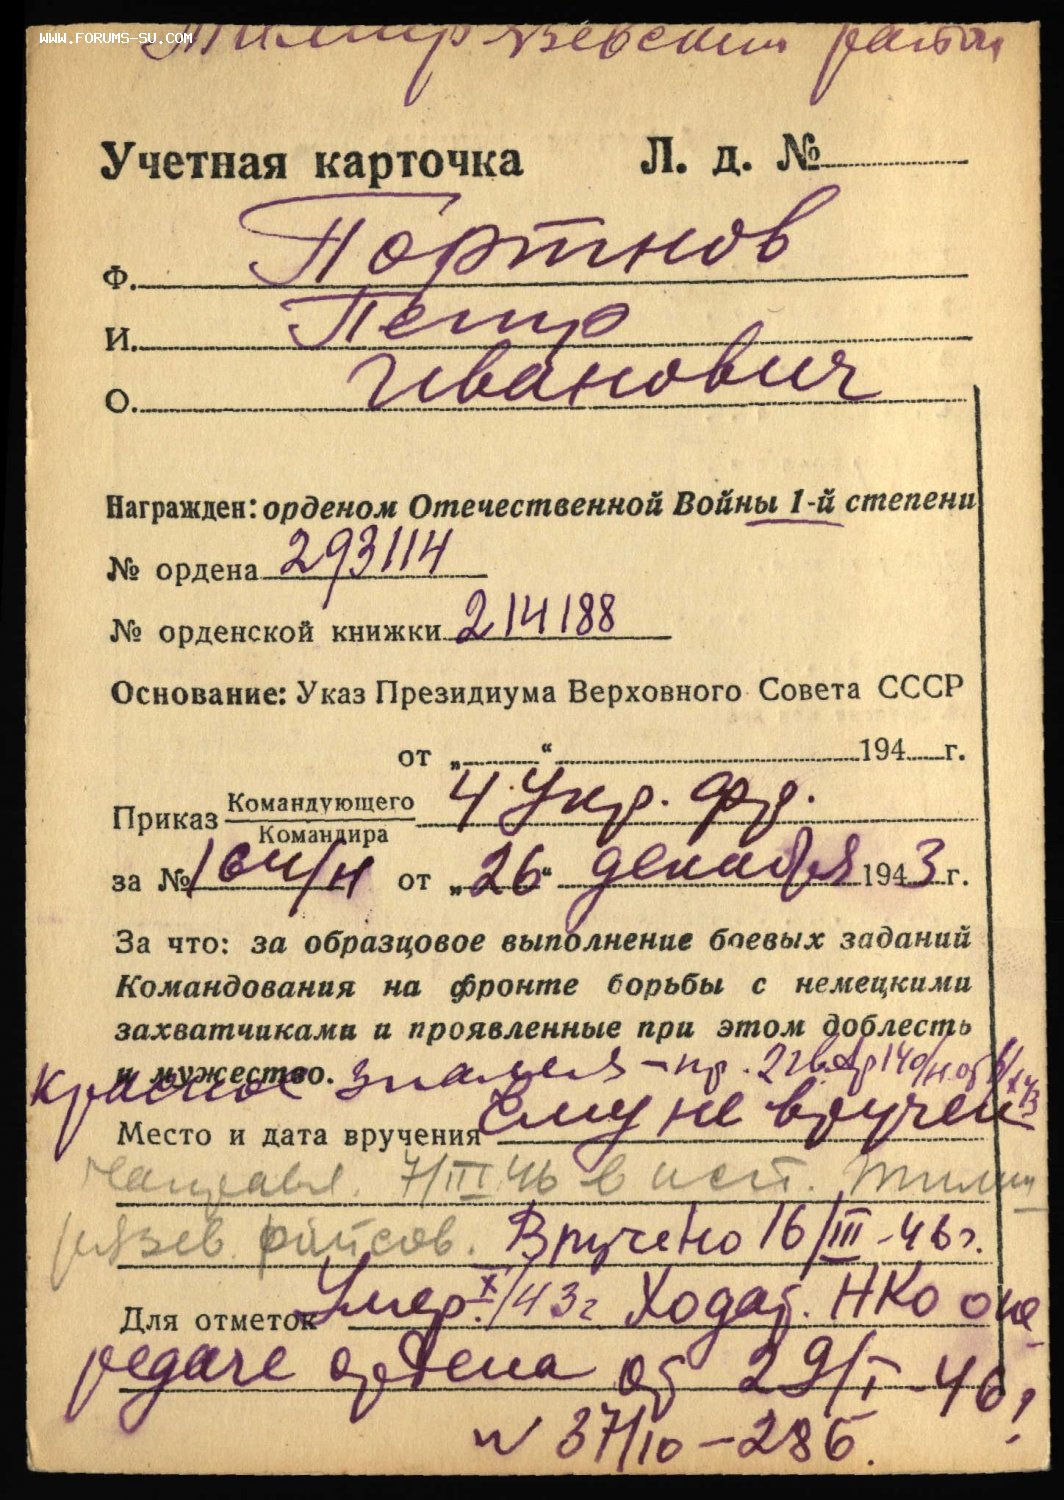 www.forums-su.com
Тимирязевский район
Учетная карточка Л. д. №
Ф. Портнов
И. Петр
О. Иванович
Награжден: орденом Отечественной Войны 1-й степени
№ ордена 293114
№ орденской книжки 214188
Основание: Указ Президиума Верховного Совета СССР
от „ “ 194 г.
Приказ Командующего
Командира 4 Укр. фр.
за № 164/н от „26“ декабря 1943 г.
За что: за образцовое выполнение боевых заданий
Командования на фронте борьбы с немецкими
захватчиками и проявленные при этом доблесть
и мужество.
Красное знамя - пр. 2 гв.
Место и дата вручения Ему не вручен
Направл. 7/III 46 в исп. Тими
рязев. райсов. Вручено 16/III-46г.
Для отметок Умер X/43г Ходат. НКО о пе
редаче ордена от 29/I-46г
N 37/10-286.